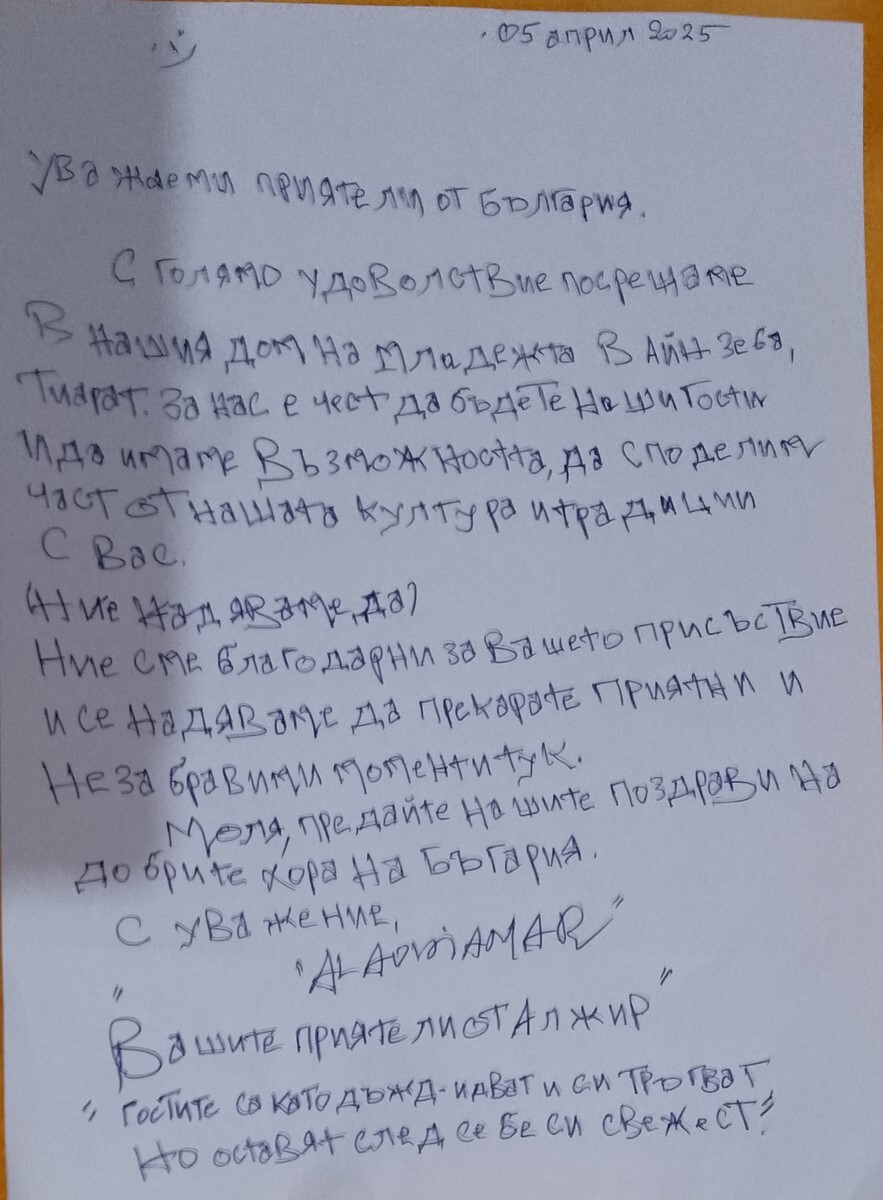 05 април 2025
Уважаеми приятели от България.
С голямо удоволствие посрещаме
В нашия дом на младежта в Айн Зеба,
Тиарат. За нас е чест да бъдете наши гости
И да имаме Възможността, да споделим
част от нашата култура и традиции
С Вас.
(Ние надяваме, да)
Ние сме благодарни за Вашето присъствие
и се надяваме да прекарате приятни и
Незабравими моменти тук.
Моля, предайте нашите поздрави на
добрите хора на Бългaрия.
С уважение,
"
"Вашите приятели от Алжир"
"Гостите са като дъжд-идват и си тръгват
Но оставят след себе си свежест."